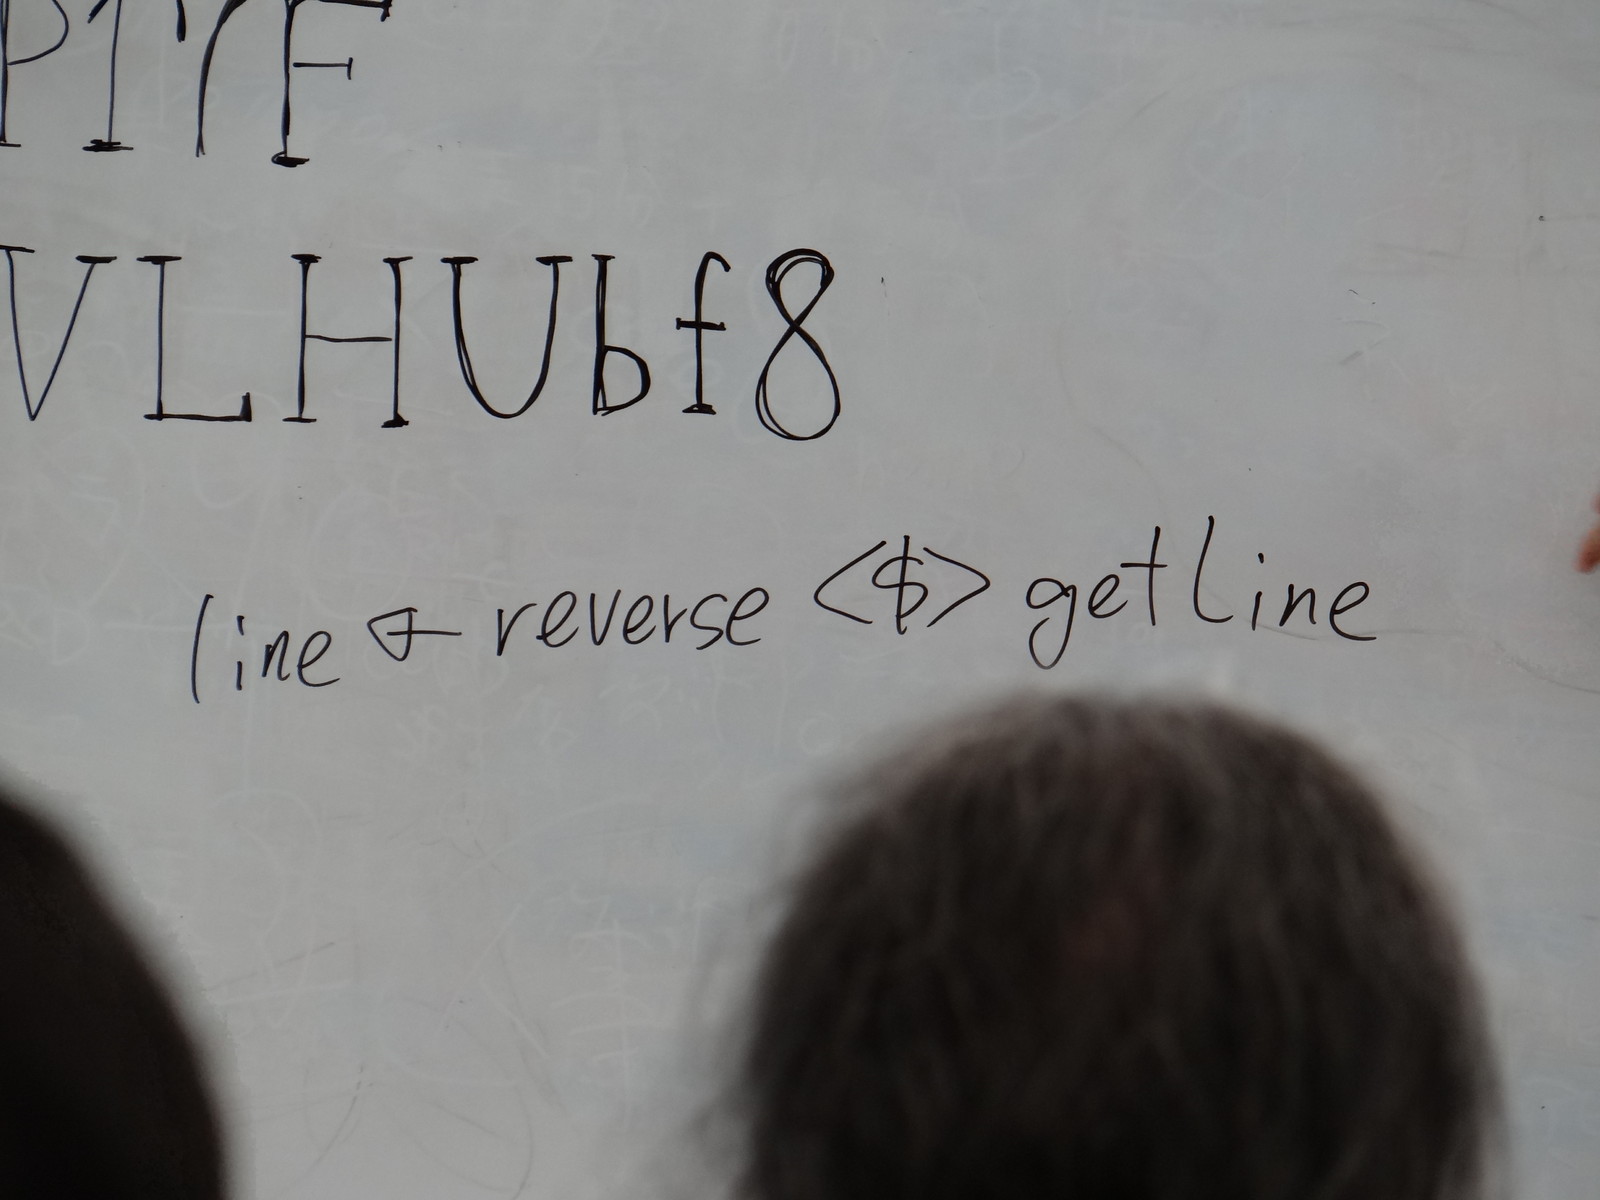 P17F
VLHUbf8
line <- reverse <$> getLine